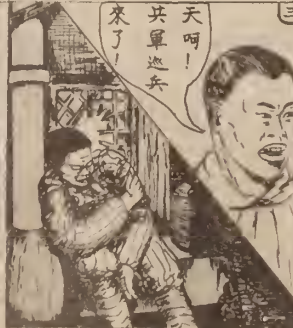 三
天呵！
共軍巡兵
來了！